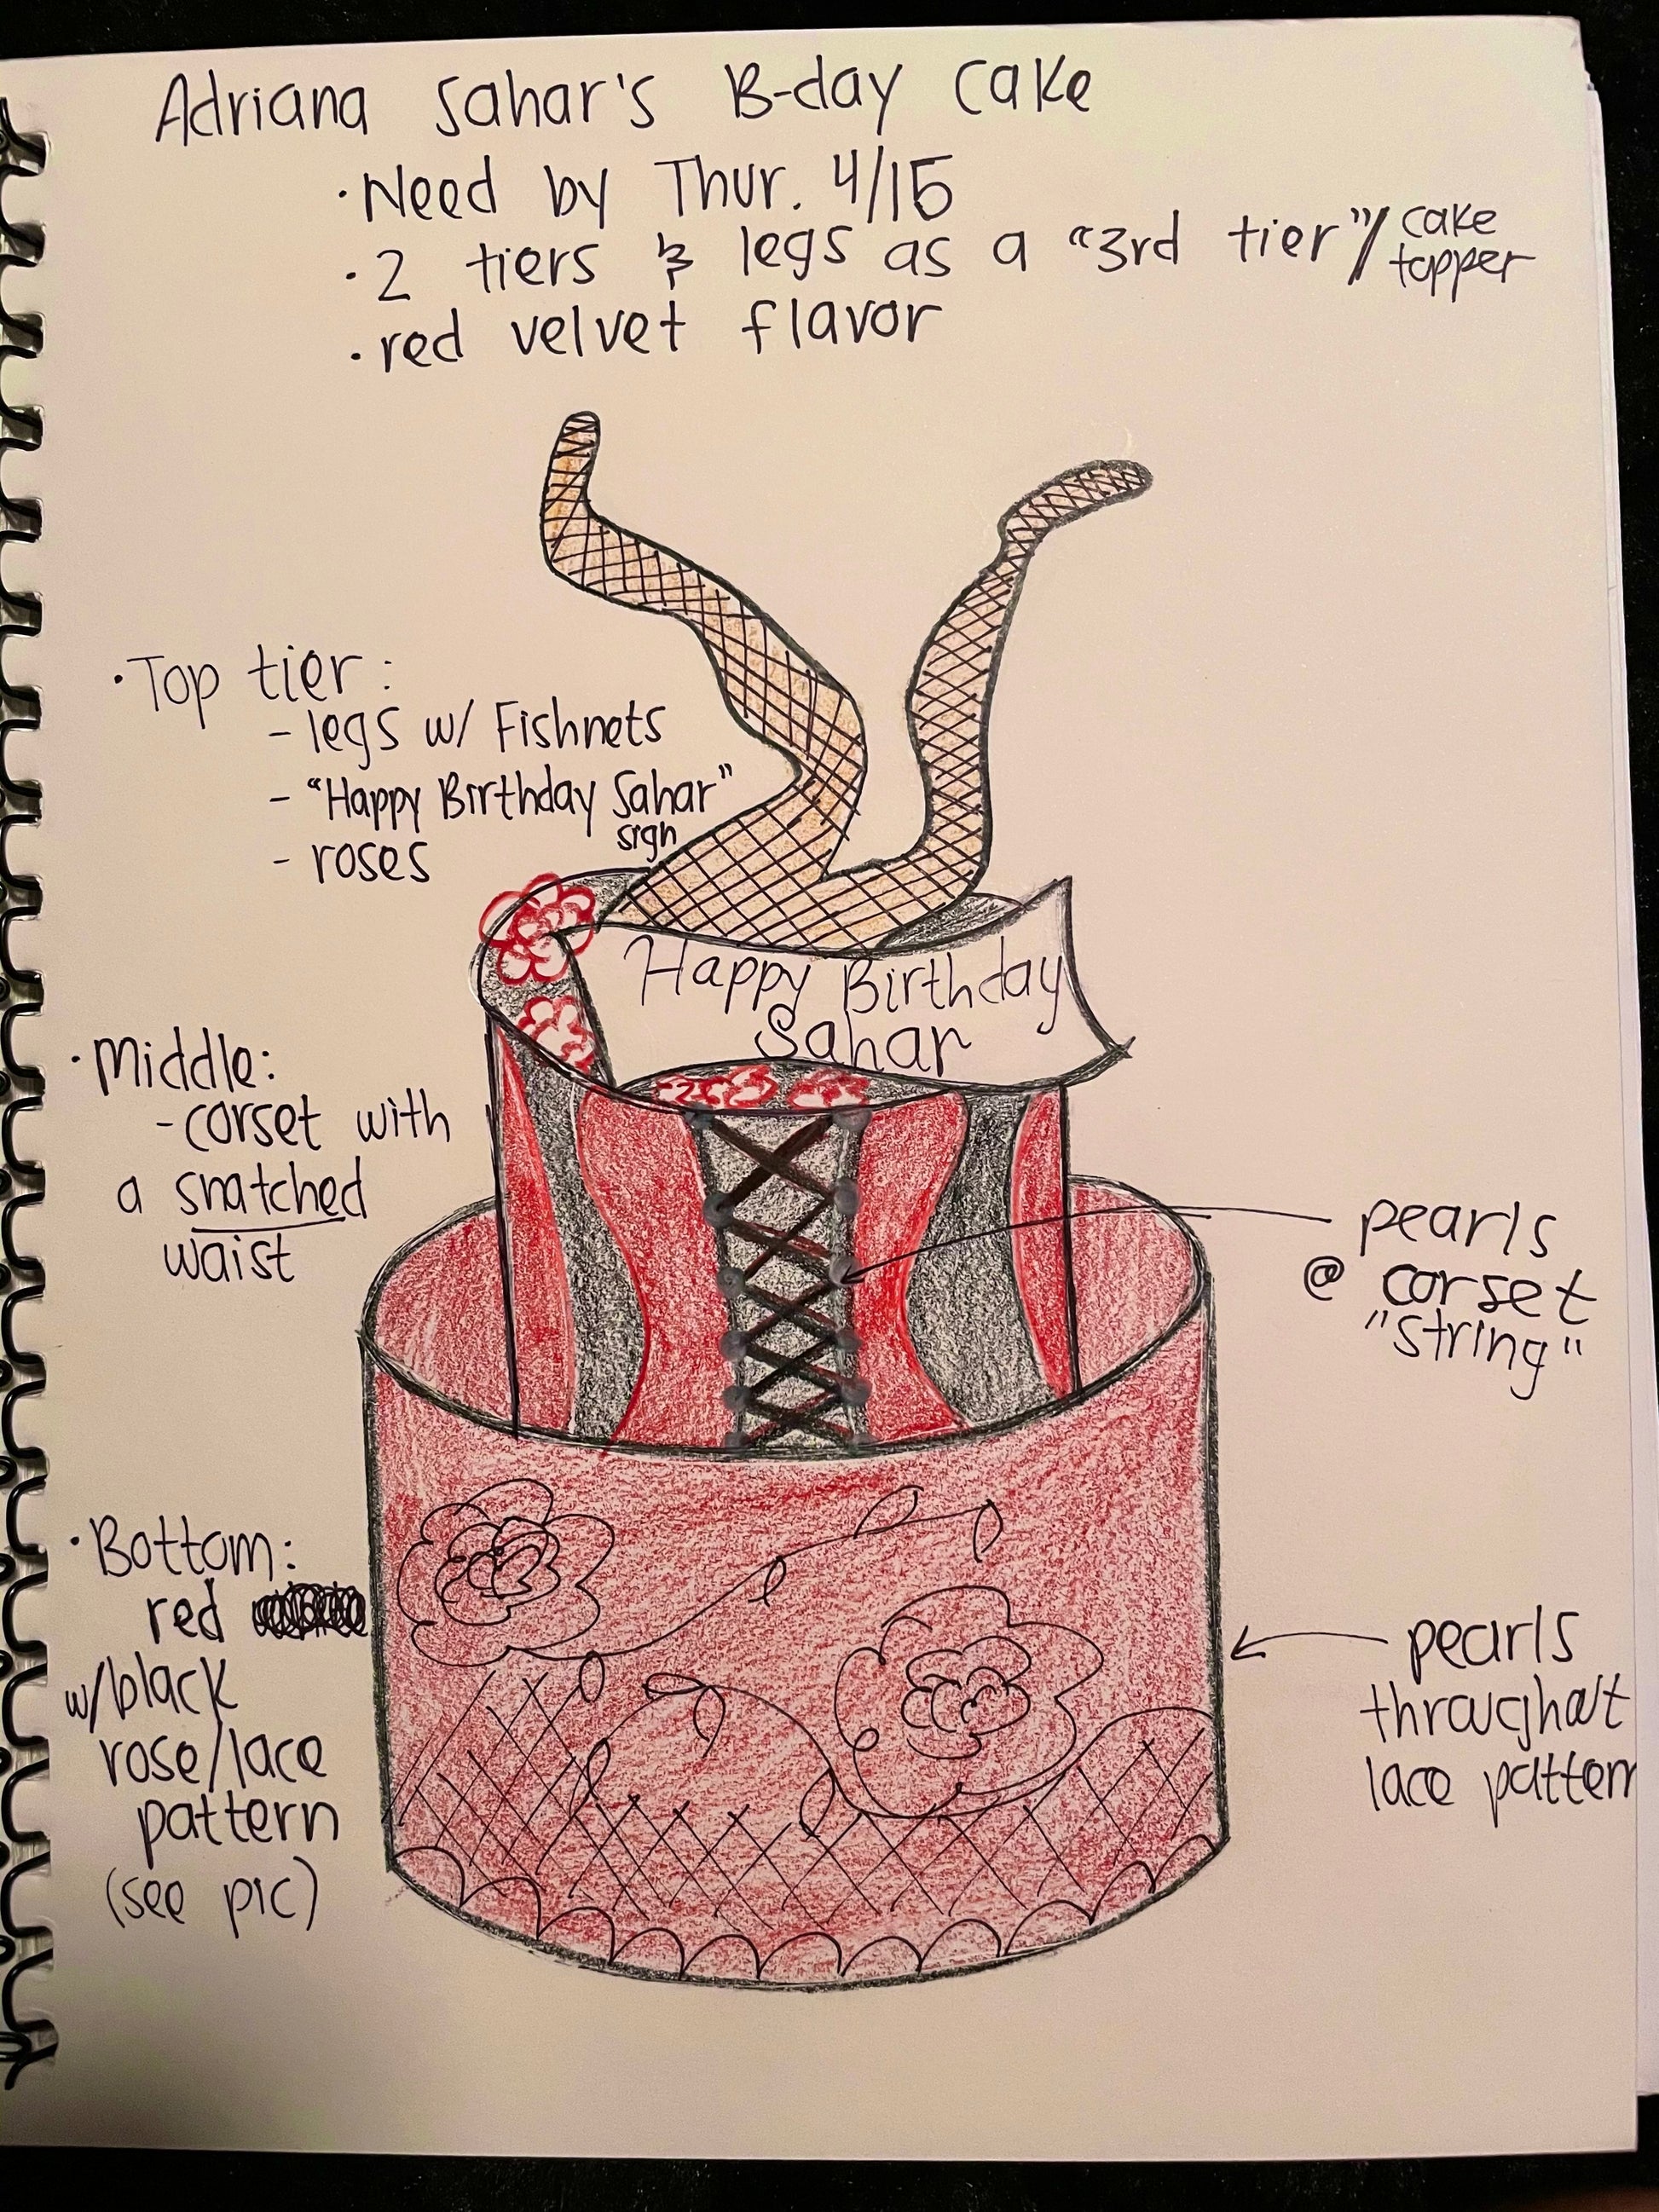 Adriana Sahar's B-day Cake
• Need by Thur. 4/15
• 2 tiers & legs as a "3rd tier"/ cake topper
• red velvet flavor
• Top tier:
- legs w/ Fishnets
- "Happy Birthday Sahar"
sign
- roses
Happy Birthday
Sahar
• Middle:
- corset with
a snatched
waist
pearls
@ corset
"string"
• Bottom:
red
w/black
rose/lace
pattern
(see pic)
pearls
throughout
lace pattern